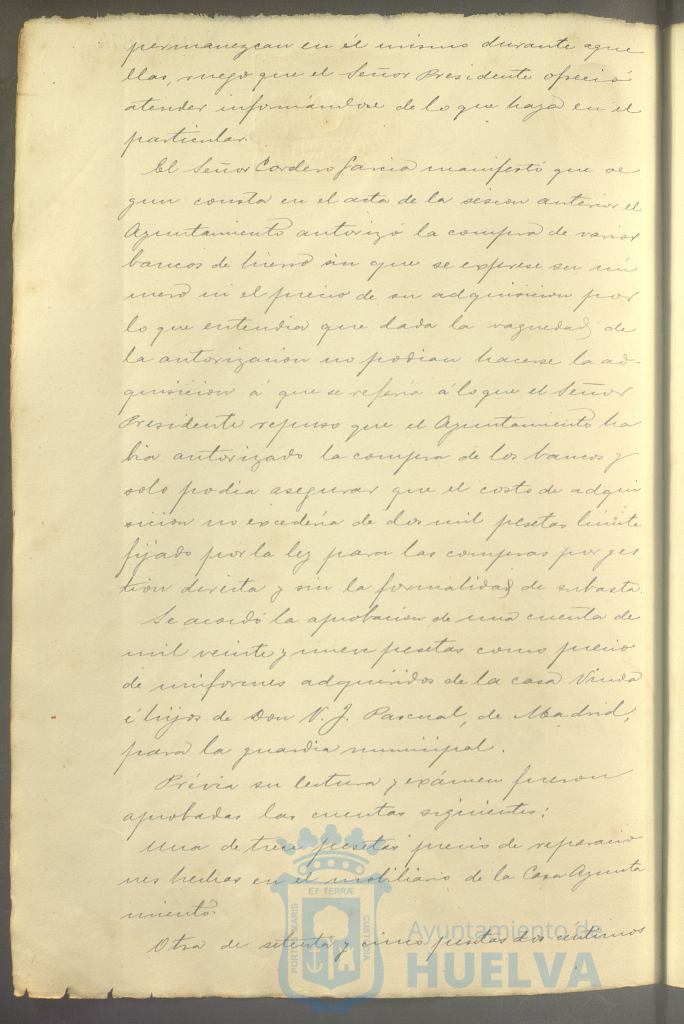 permanezcan en él mismo durante aque
llas, ruego que el Señor Presidente ofreció
atender informándose de lo que haya en el
particular.
El Señor Cordero Garcia manifestó que se
gun consta en el acta de la sesion anterior el
Ayuntamiento autorizó la compra de varios
bancos de hierro sin que se exprese su nú
mero ni el precio de su adquisicion por
lo que entendia que dada la vaguedad de
la autorizacion no podian hacerse la ad-
quisicion á que se referia á lo que el Señor
Presidente repuso que el Ayuntamiento ha
bia autorizado la compra de los bancos y
solo podia asegurar que el costo de adqui
sicion no excederia de dos mil pesetas limite
fijado por la ley para las compras por ges
tion directa y sin la formalidad de subasta.
Se acordó la aprobacion de una cuenta de
mil veinte y nueve pesetas como precio
de uniformes adquiridos de la casa Viuda
é hijos de Don V. J. Pascual, de Madrid,
para la guardia municipal.
Prévia su lectura y exámen fueron
aprobadas las cuentas siguientes:
Una de trece pesetas precio de reparacio
nes hechas en el mobiliario de la Casa Ayunta
miento.
Otra de setenta y cinco pesetas dos céntimos
PORTUS MARIS
ET TERRÆ
CUSTODIA
Ayuntamiento de
HUELVA